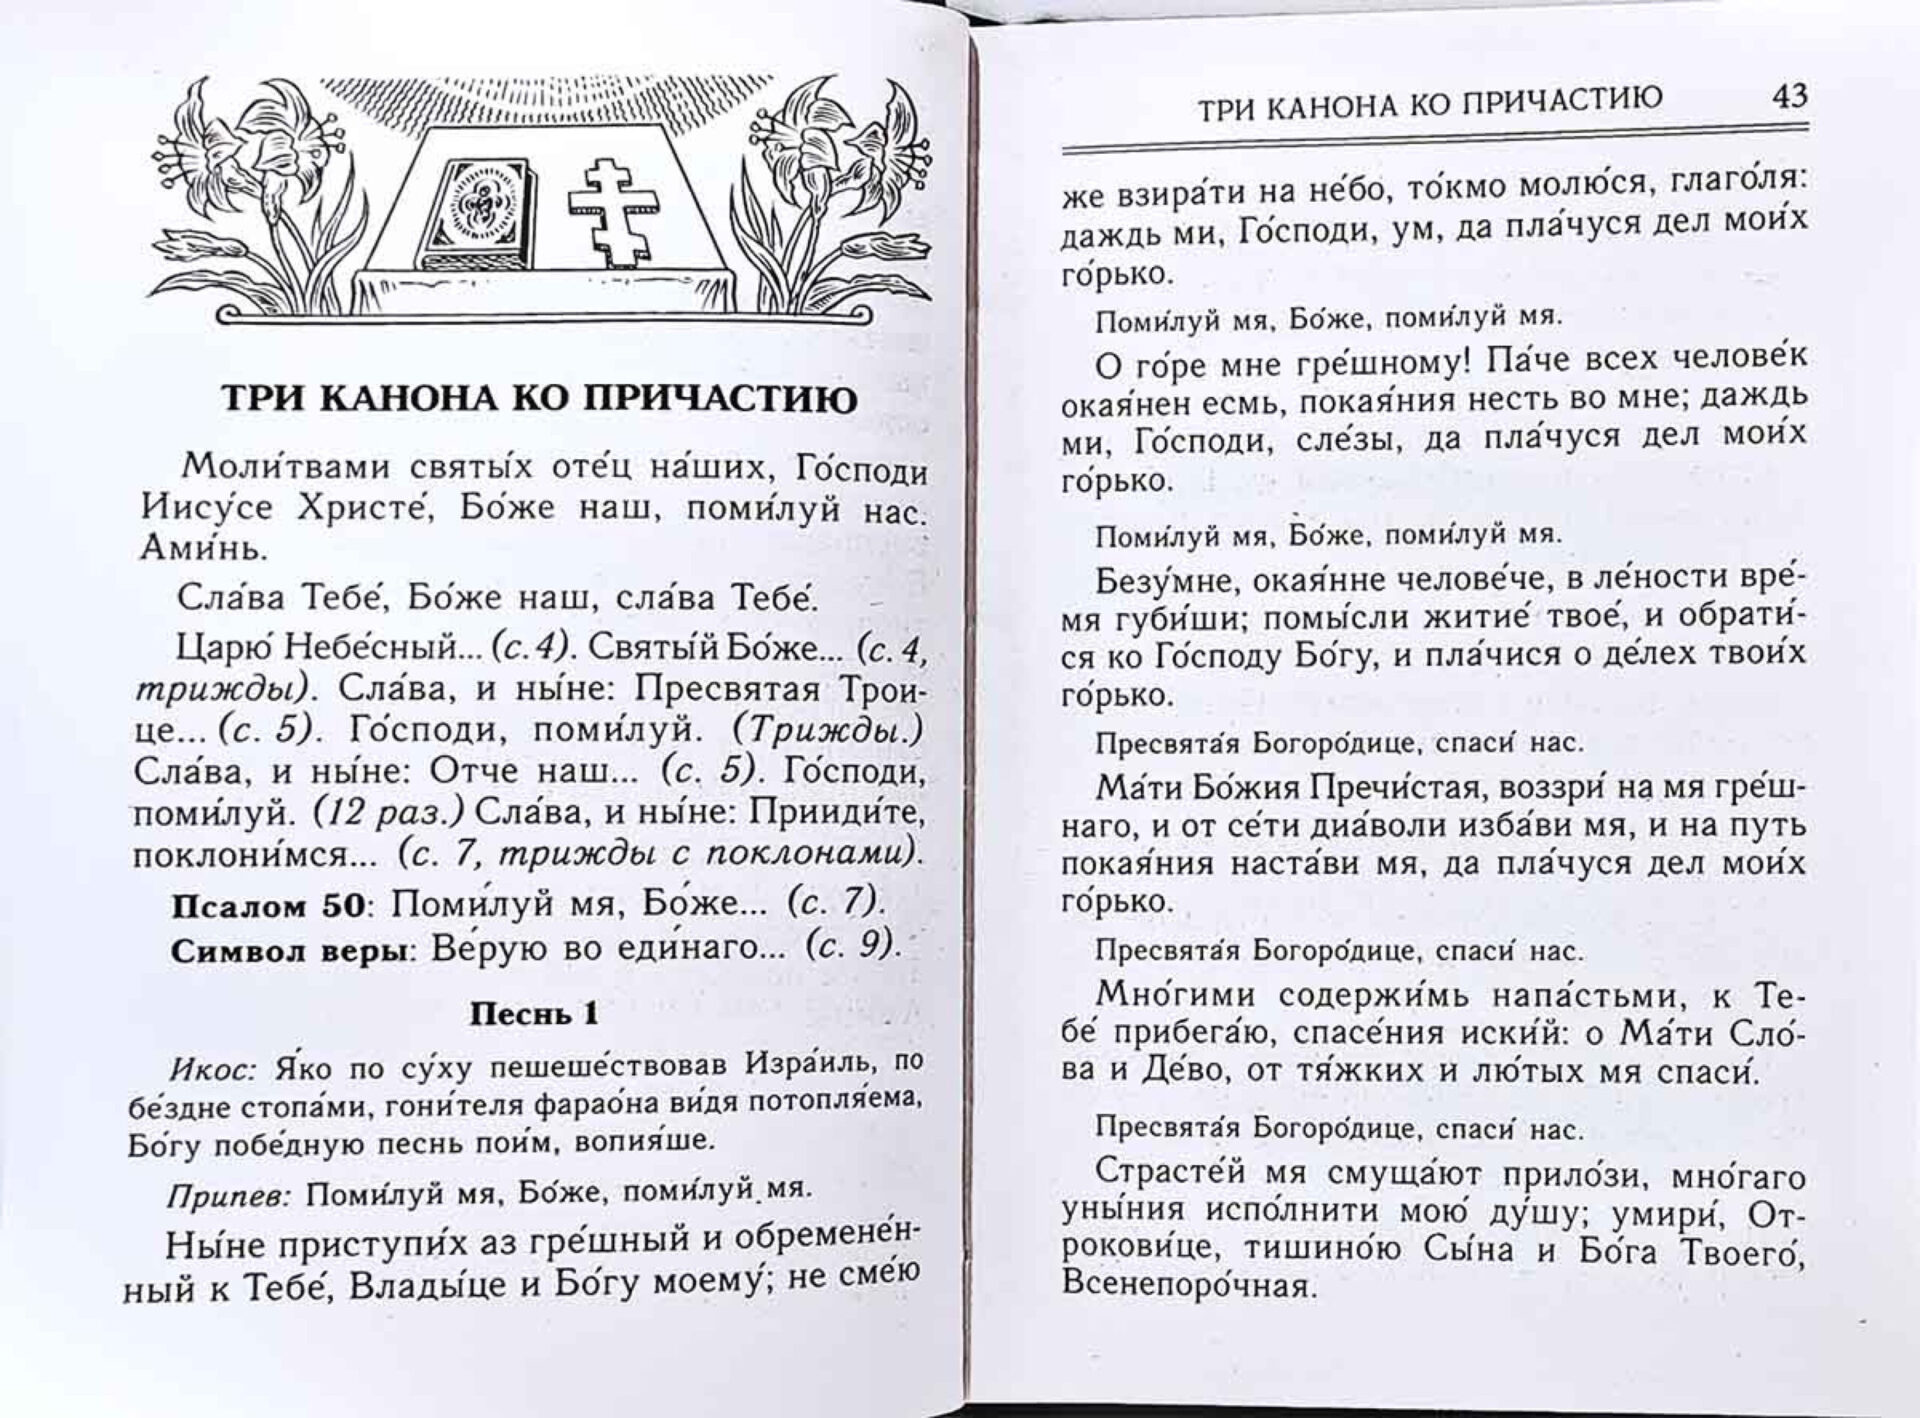 ТРИ КАНОНА КО ПРИЧАСТИЮ
Моли́твами святы́х оте́ц на́ших, Го́споди
Иису́се Христе́, Бо́же наш, поми́луй нас.
Ами́нь.
Сла́ва Тебе́, Бо́же наш, сла́ва Тебе́.
Царю́ Небе́сный... (с. 4). Святы́й Бо́же... (с. 4,
трижды). Сла́ва, и ны́не: Пресвятая Трои-
це... (с. 5). Го́споди, поми́луй. (Трижды.)
Сла́ва, и ны́не: Отче наш... (с. 5). Го́споди,
поми́луй. (12 раз.) Сла́ва, и ны́не: Приидите,
поклони́мся... (с. 7, трижды с поклонами).
Псалом 50: Поми́луй мя, Бо́же... (с. 7).
Символ веры: Ве́рую во еди́наго... (с. 9).
Песнь 1
Икос: Я́ко по су́ху пешеше́ствовав Изра́иль, по
бе́здне стопа́ми, гони́теля фарао́на ви́дя потопля́ема,
Бо́гу побе́дную песнь пои́м, вопия́ше.
Припев: Поми́луй мя, Бо́же, поми́луй мя.
Ны́не приступи́х аз гре́шный и обремене́н-
ный к Тебе́, Влады́це и Бо́гу моему́; не сме́ю
ТРИ КАНОНА КО ПРИЧАСТИЮ 43
же взира́ти на не́бо, то́кмо молю́ся, глаго́ля:
даждь ми, Го́споди, ум, да пла́чуся дел мои́х
го́рько.
Поми́луй мя, Бо́же, поми́луй мя.
О го́ре мне гре́шному! Па́че всех челове́к
окая́нен есмь, покая́ния несть во мне; даждь
ми, Го́споди, сле́зы, да пла́чуся дел мои́х
го́рько.
Поми́луй мя, Бо́же, поми́луй мя.
Безу́мне, окая́нне челове́че, в ле́ности вре́-
мя губи́ши; помы́сли житие́ твое́, и обрати́-
ся ко Го́споду Бо́гу, и пла́чися о де́лех твои́х
го́рько.
Пресвята́я Богоро́дице, спаси́ нас.
Ма́ти Бо́жия Пречи́стая, воззри́ на мя гре́ш-
наго, и от се́ти диа́воли изба́ви мя, и на путь
покая́ния наста́ви мя, да пла́чуся дел мои́х
го́рько.
Пресвята́я Богоро́дице, спаси́ нас.
Мно́гими содержи́мь напа́стьми, к Те-
бе́ прибега́ю, спасе́ния иски́й: о Ма́ти Сло́-
ва и Де́во, от тя́жких и лю́тых мя спаси́.
Пресвята́я Богоро́дице, спаси́ нас.
Страсте́й мя смуща́ют прило́зи, мно́гаго
уны́ния испо́лнити мою́ ду́шу; умири́, От-
рокови́це, тишино́ю Сы́на и Бо́га Твоего́,
Всенепоро́чная.